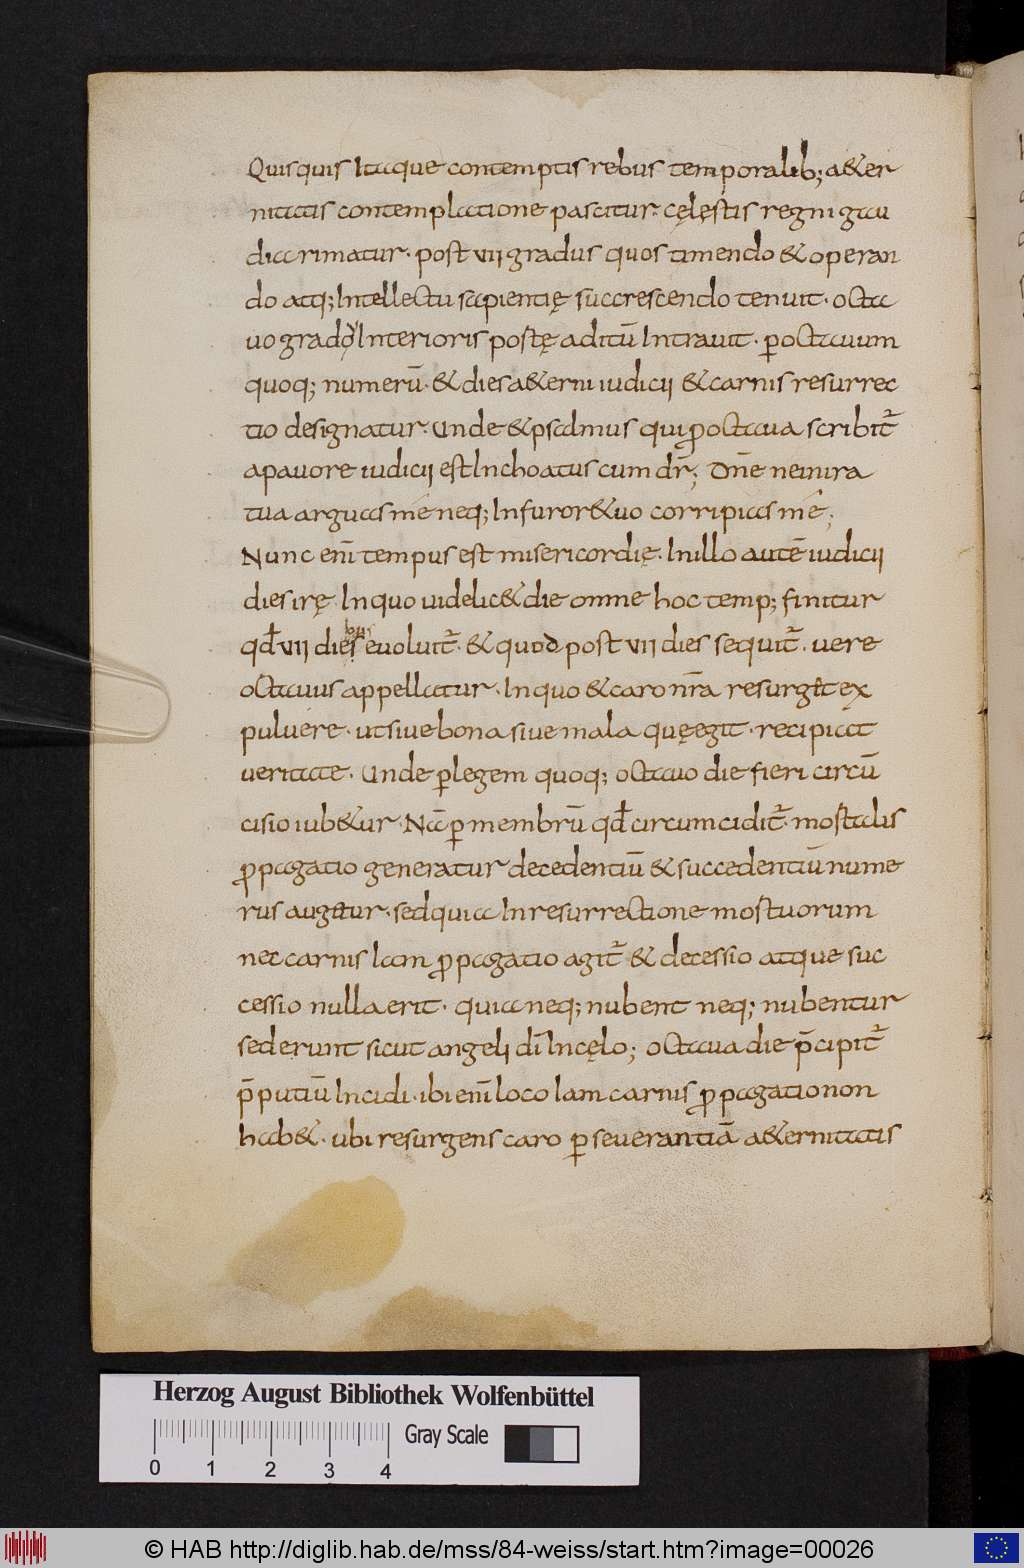 Quisquis itaque contemptis rebus temporalib; a&er
nitatis contemplatione pascitur· cęlęstis regni gau
dia rimatur· post vii gradus quos timendo & operan
do atq; intellectu sapientię succrescendo tenuit· octa
uo gradu interioris portę aditū intrauit· ꝑ octauum
quoq; numerū· & dies a&erni iudicii & carnis resurrec
tio designatur· Unde & psalmus qui ꝓ octaua scribit᷑
a pauore iudicii est inchoatus cum dr̄; Dn̄e ne in ira
tua arguas me neq; in furore tuo corripias me;
Nunc enī tempus est misericordię· in illo autē iudicii
dies irę· In quo uidelic& die omne hoc temp; finitur
qđ vii diebus euoluit᷑· & quod post vii dies sequit᷑· uere
octauus appellatur· In quo & caro nr̄a resurget ex
puluere· ut siue bona siue mala quę egit· recipiat
ueritate· Unde ꝑ legem quoq; octauo die fieri circū
cisio iub&ur· Nā ꝑ membrū qđ circumcidit᷑· mortalis
ꝓpagatio generatur decedentiū & succedentiū nume
rus augetur· sed quia in resurrectione mortuorum
nec carnis iam ꝓpagatio agit᷑ & decessio atque suc
cessio nulla erit· quia neq; nubent neq; nubentur
sed erunt sicut angeli dī in cęlo; octaua die p̄cipit᷑
p̄putiū incidi· ibi enī loco iam carnis ꝓpagatio non
hab&· ubi resurgens caro ꝑseuerantiā a&ernitatis
Herzog August Bibliothek Wolfenbüttel
0 1 2 3 4
Gray Scale
© HAB http://diglib.hab.de/mss/84-weiss/start.htm?image=00026